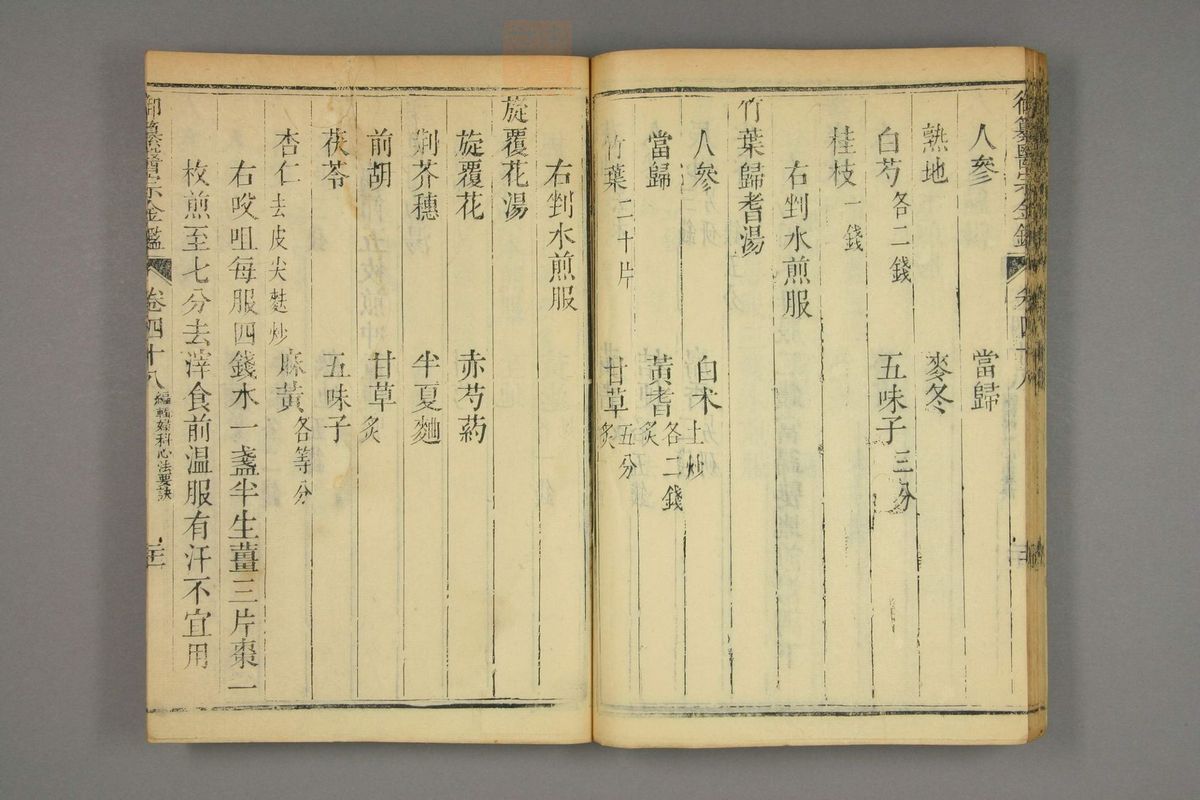 御纂醫宗金鑑 卷四十八
人參 當歸
熟地 麥冬
白芍各二錢 五味子三分
桂枝一錢
右剉水煎服
竹葉歸耆湯
人參 白朮土炒
當歸 黃耆炙各二錢
竹葉二十片 甘草炙五分
右剉水煎服
旋覆花湯
旋覆花 赤芍藥
荆芥穗 半夏麯
前胡 甘草炙
茯苓 五味子
杏仁去皮尖麩炒 麻黃各等分
右㕮咀每服四錢水一盞半生薑三片棗一
枚煎至七分去滓食前溫服有汗不宜用
御纂醫宗金鑑 卷四十八 編輯婦科心法要訣